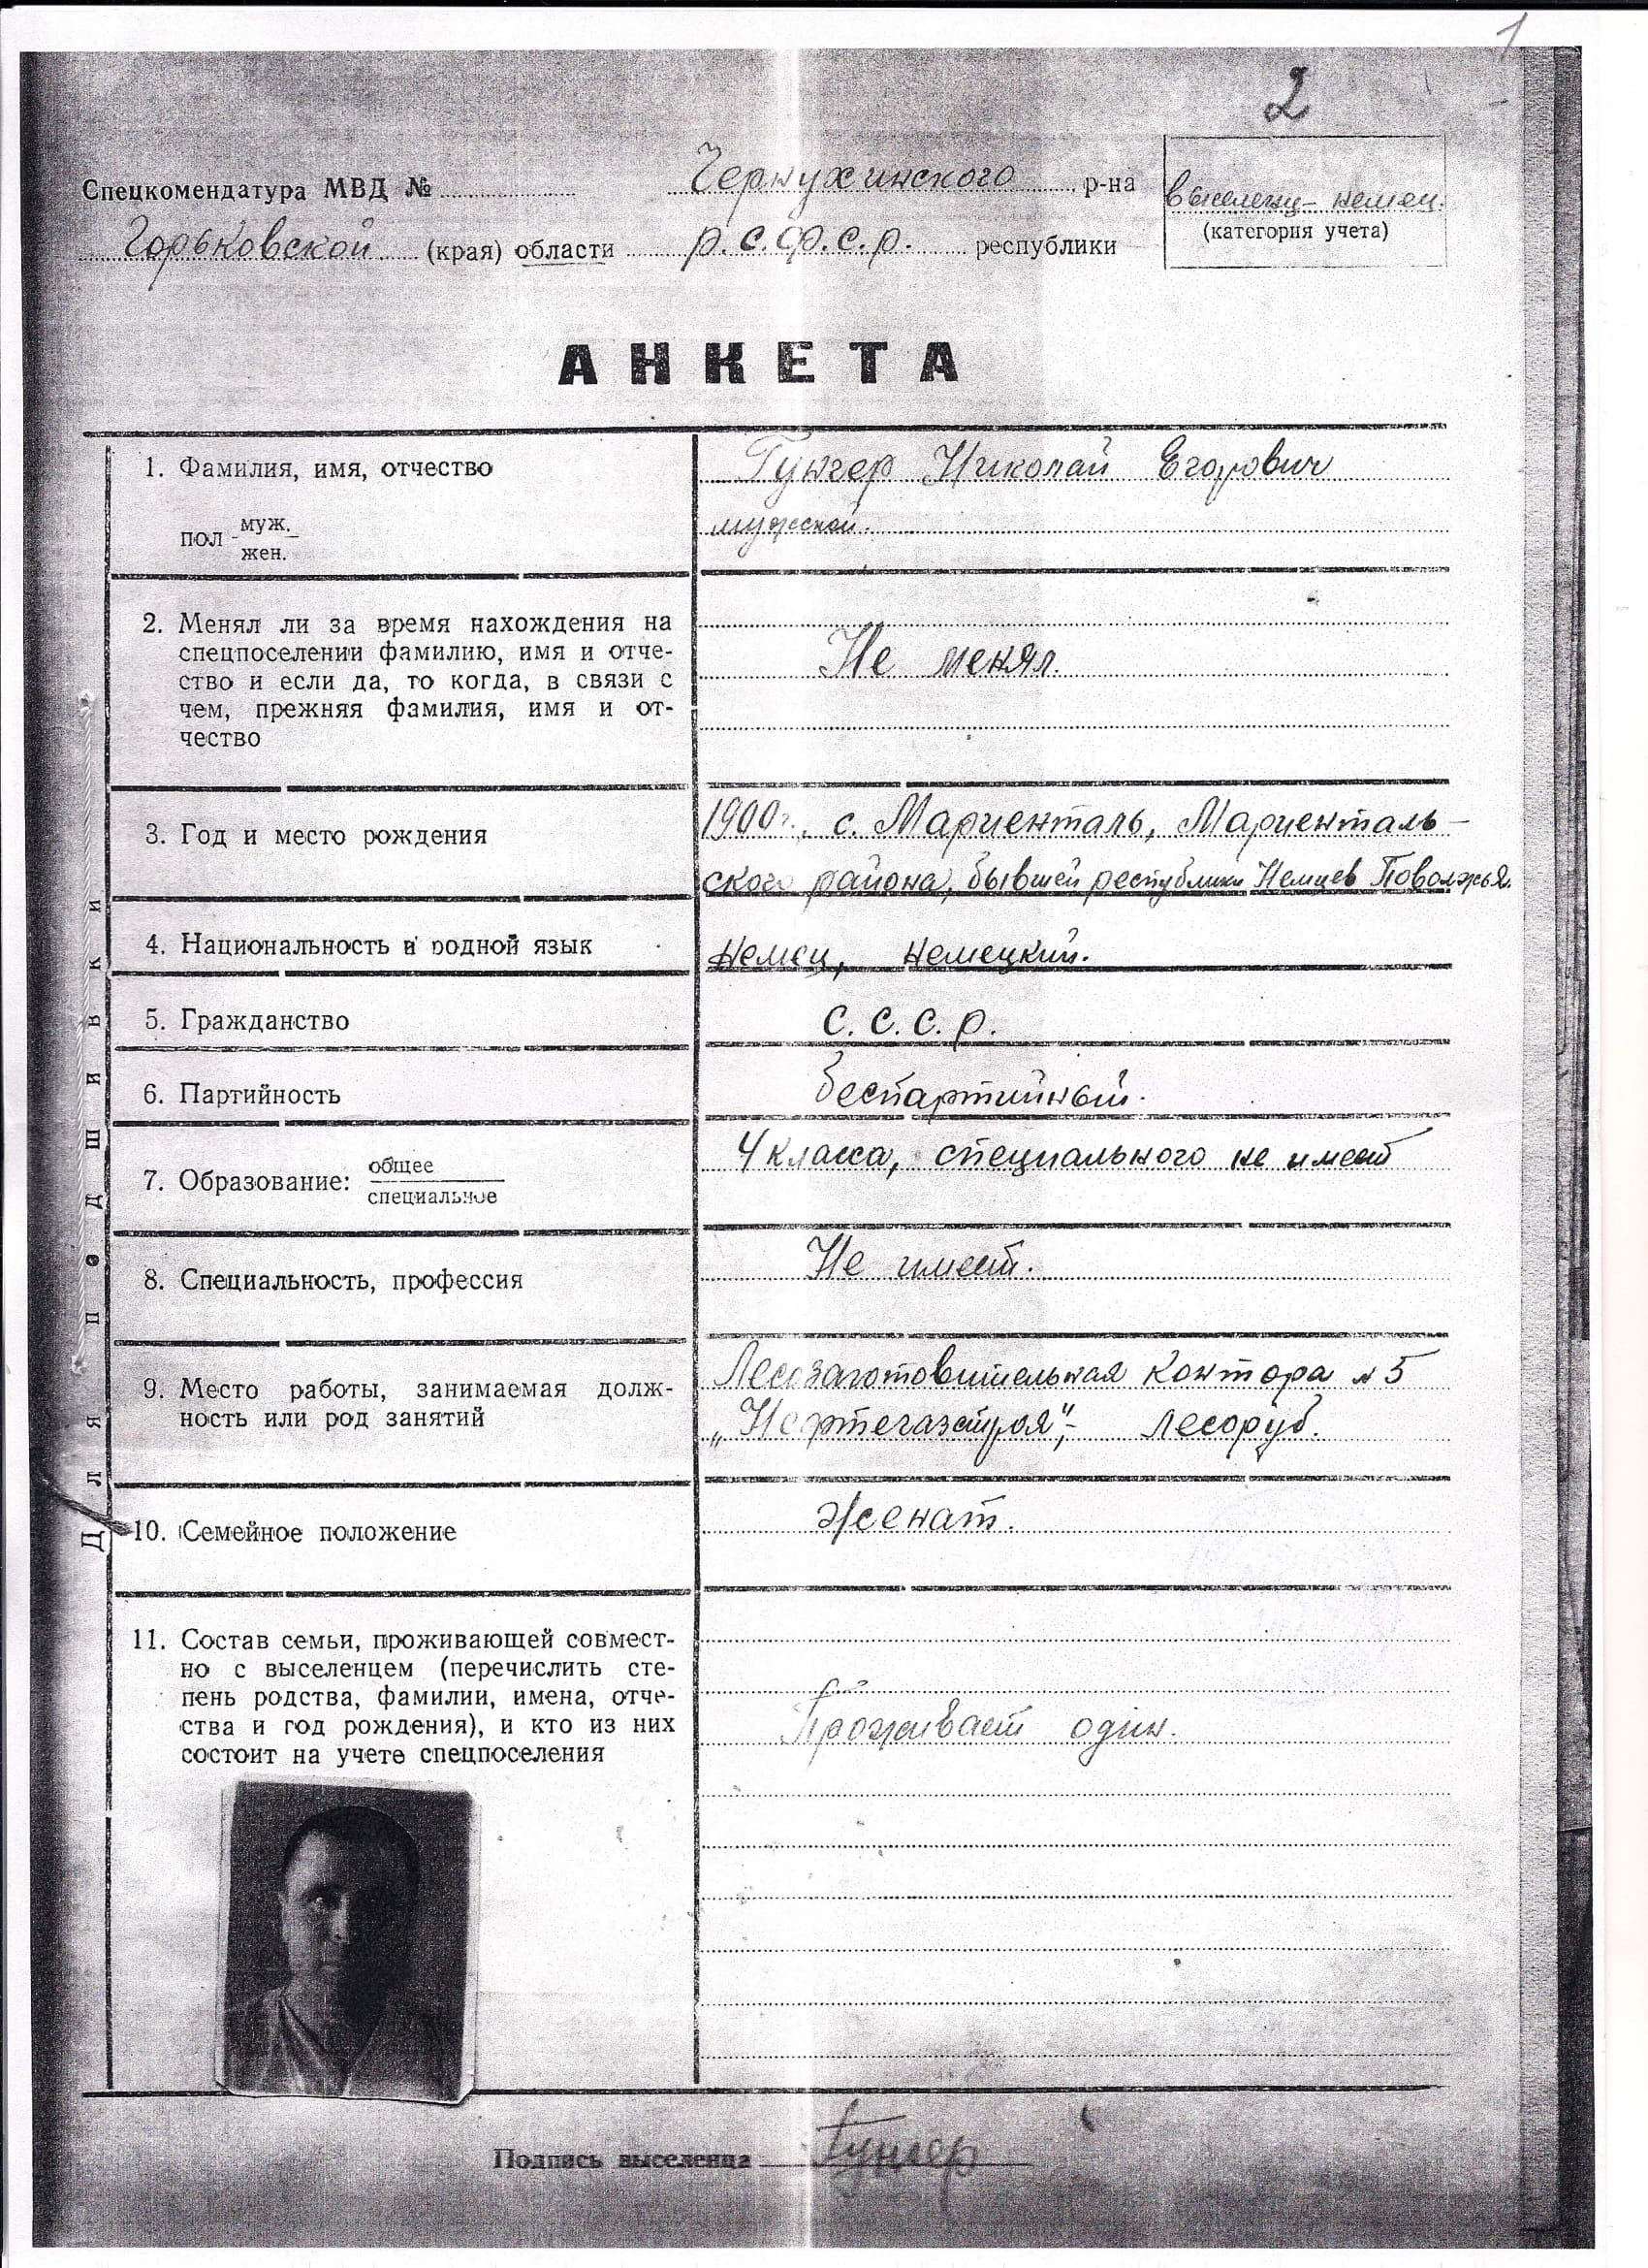 1
2
Спецкомендатура МВД № Чернухинского р-на
выселенец - немец.
Горьковской (края) области р.с.ф.с.р. республики
(категория учета)
АНКЕТА
1. Фамилия, имя, отчество Гунгер Николай Егорович
пол муж. жен. мужской.
2. Менял ли за время нахождения на
спецпоселении фамилию, имя и отче-
ство и если да, то когда, в связи с
чем, прежняя фамилия, имя и от-
чество
Не менял.
3. Год и место рождения 1900 г., с. Мариенталь, Мариенталь-
ского района, бывшей республики Немцев Поволжья.
4. Национальность и родной язык немец, немецкий.
5. Гражданство С. С. С. р.
6. Партийность беспартийный.
7. Образование: общее специальное 4 класса, специального не имеет
8. Специальность, профессия Не имеет.
9. Место работы, занимаемая долж-
ность или род занятий
Лесозаготовительная контора №5
„Нефтегазстроя", - лесоруб.
10. Семейное положение Женат.
11. Состав семьи, проживающей совмест-
но с выселенцем (перечислить сте-
пень родства, фамилии, имена, отче-
ства и год рождения), и кто из них
состоит на учете спецпоселения
Проживает один.
Для подшивки
Подпись выселенца Гунгер